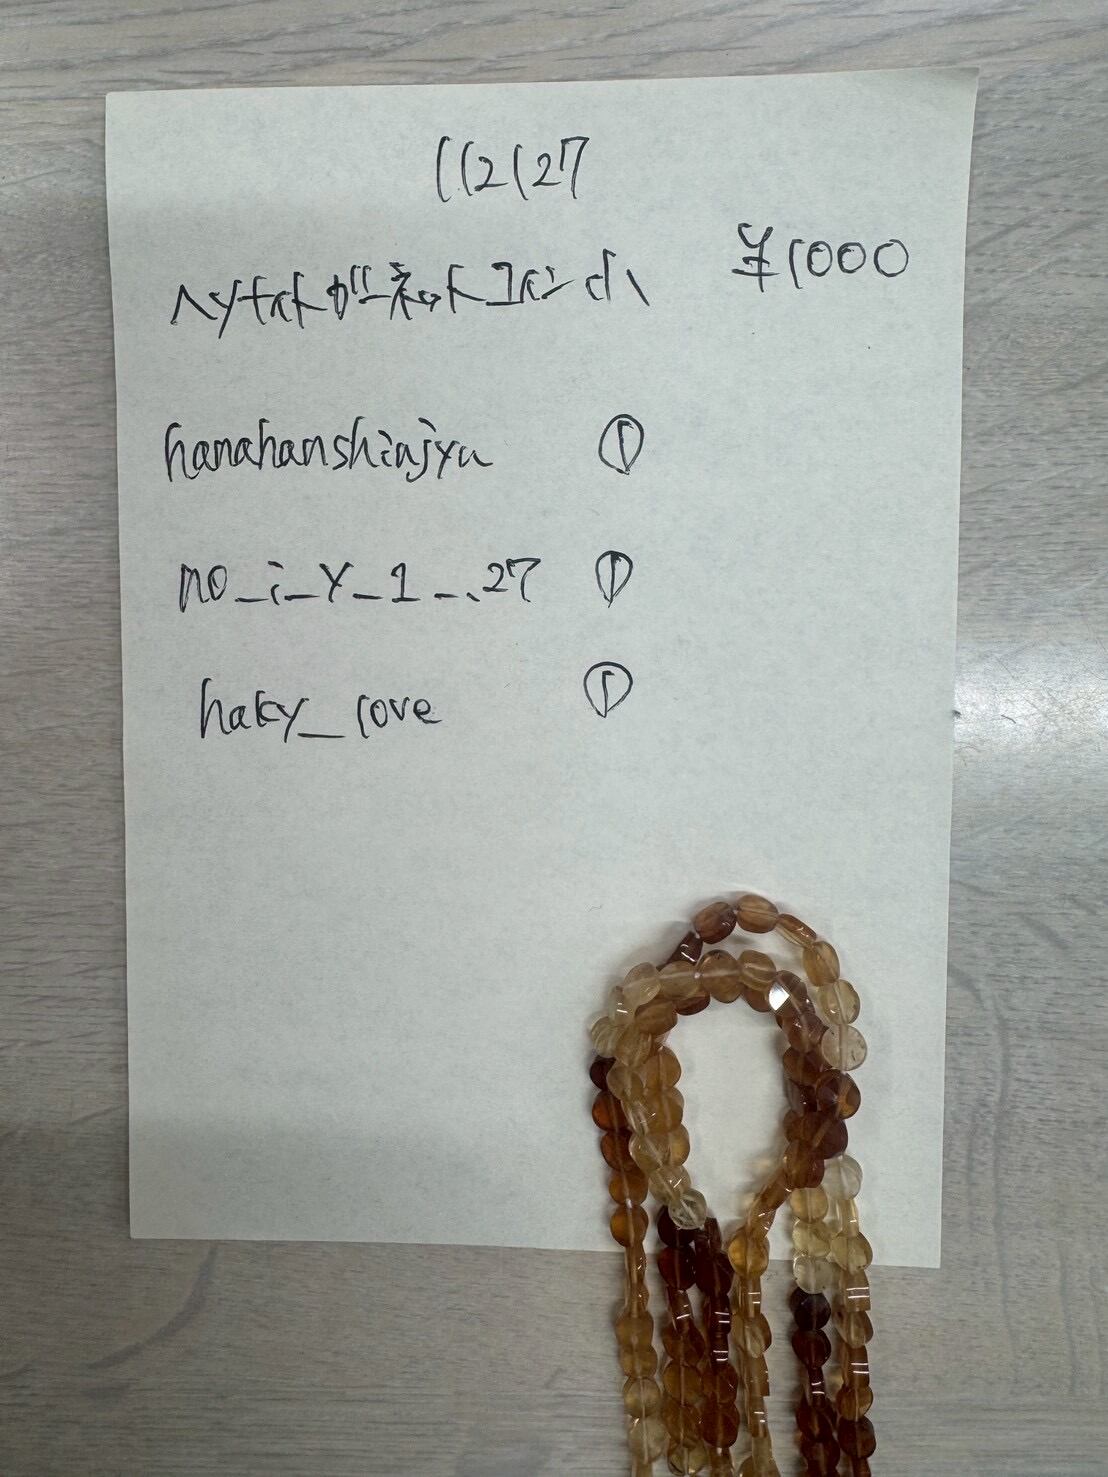 112127
ヘソナイトガーネットコイン小 ¥1000
hanahanshinjyu ①
no_i_Y_1_..27 ①
haky_love ①